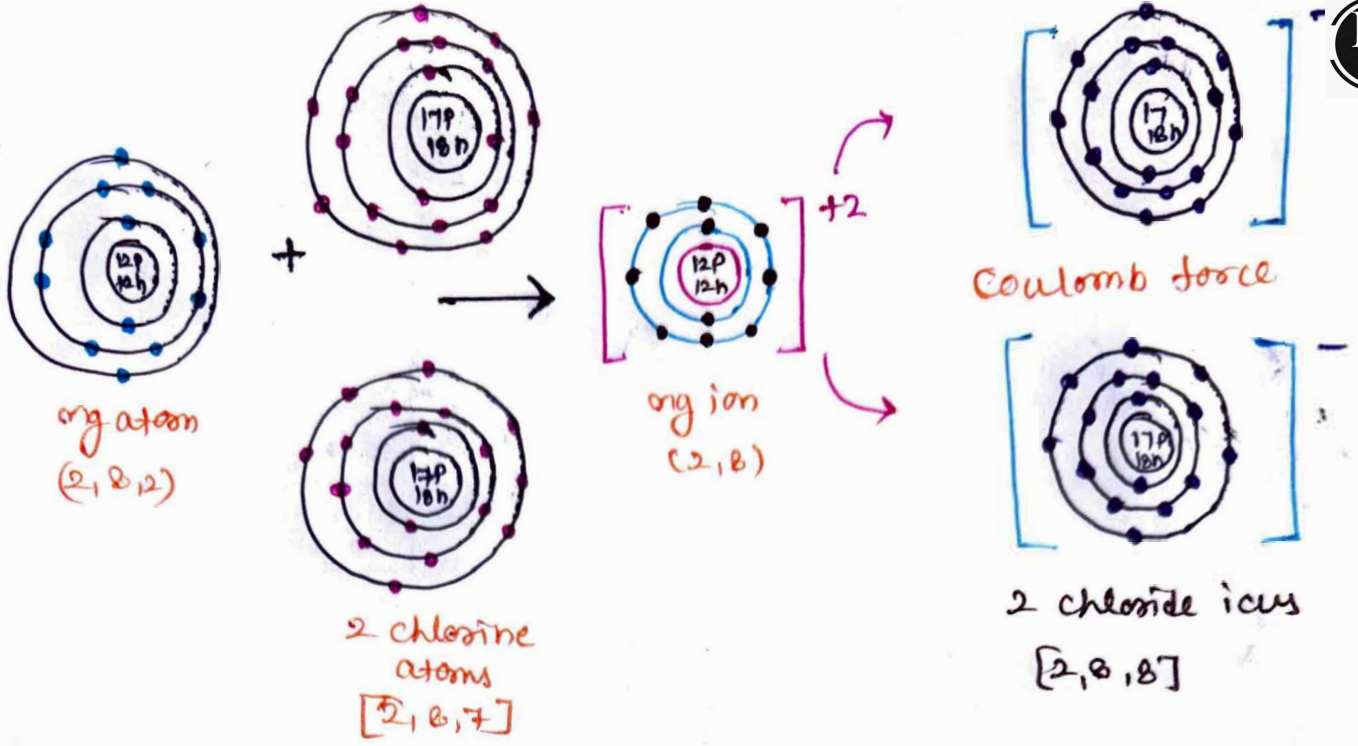 12p
12n
mg atom
(2, 8, 2)
+
17p
18n
17p
18n
2 chlorine
atoms
[2, 8, 7]
12p
12n
+2
mg ion
(2, 8)
17
18n
-
Coulomb force
17p
18n
-
2 chloride
[2, 8, 8]